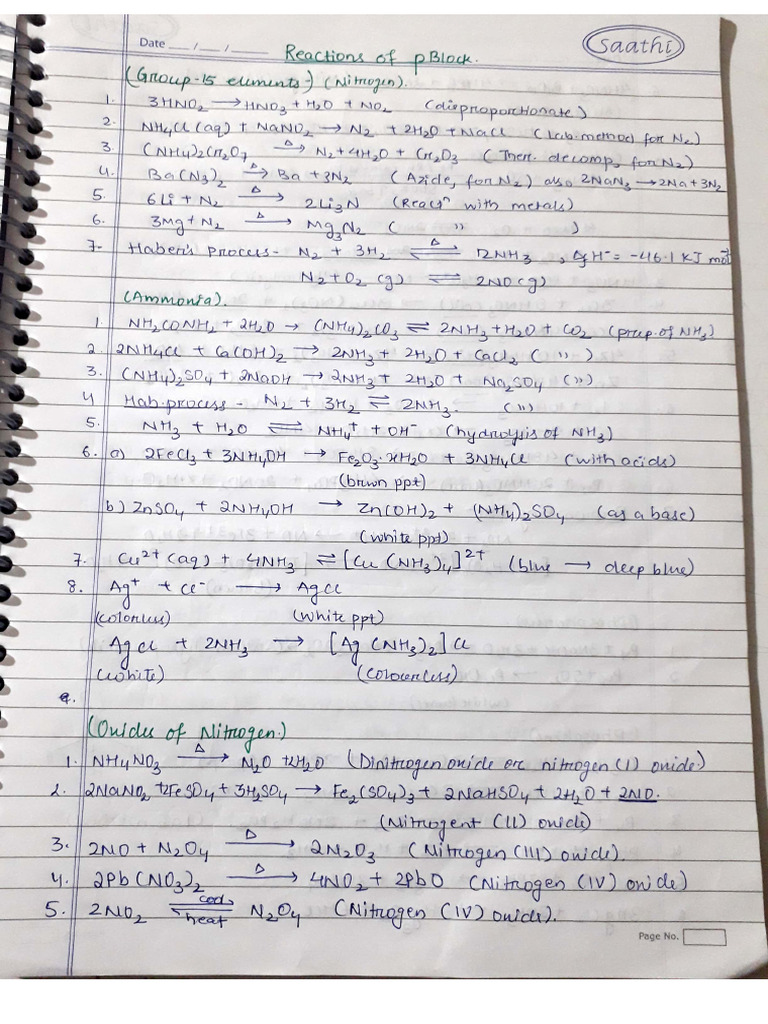 Date __/__/__
Saathi
Reactions of pBlock.
(Group-15 elements-) (Nitrogen).
1. 3HNO2 → HNO3 + H2O + NO2 (disproportionate)
2. NH4Cl (aq) + NaNO2 → N2 + 2H2O + NaCl (Lab. method for N2)
3. (NH4)2Cr2O7 →Δ N2 + 4H2O + Cr2O3 (Ther. decomp, for N2)
4. Ba(N3)2 →Δ Ba + 3N2 (Azide, for N2) also 2NaN3 → 2Na + 3N2
5. 6Li + N2 →Δ 2Li3N (Reacⁿ with metals)
6. 3Mg + N2 →Δ Mg3N2 ( " )
7- Haber's Process- N2 + 3H2 ⇌Δ 2NH3 , ΔfH⁻ = -46.1 KJ mol⁻¹
N2 + O2 (g) ⇌ 2NO (g)
(Ammonia).
1. NH2CONH2 + 2H2O → (NH4)2CO3 ⇌ 2NH3 + H2O + CO2 (prep. of NH3)
2. 2NH4Cl + Ca(OH)2 → 2NH3 + 2H2O + CaCl2 ( " )
3. (NH4)2SO4 + 2NaOH → 2NH3 + 2H2O + Na2SO4 ( " )
4 Hab. process - N2 + 3H2 ⇌ 2NH3. ( " )
5. NH3 + H2O ⇌ NH4⁺ + OH⁻ (hydrolysis of NH3)
6. a) 2FeCl3 + 3NH4OH → Fe2O3·xH2O + 3NH4Cl (with acids)
(brwn ppt)
b) ZnSO4 + 2NH4OH → Zn(OH)2 + (NH4)2SO4 (as a base)
(white ppt)
7. Cu²⁺ (aq) + 4NH3 ⇌ [Cu(NH3)4]²⁺ (blue → deep blue)
8. Ag⁺ + Cl⁻ → AgCl
(colorless) (white ppt)
AgCl + 2NH3 → [Ag(NH3)2]Cl
(white) (colourless)
9.
(Oxides of Nitrogen.)
1. NH4NO3 →Δ N2O + 2H2O (Dinitrogen oxide or nitrogen (I) oxide)
2. 2NaNO2 + 2FeSO4 + 3H2SO4 → Fe2(SO4)3 + 2NaHSO4 + 2H2O + 2NO.
(Nitrogent (II) oxide)
3. 2NO + N2O4 →Δ 2N2O3 (Nitrogen (III) oxide).
4. 2Pb(NO3)2 →Δ 4NO2 + 2PbO (Nitrogen (IV) oxide)
5. 2NO2 ⇌ cool, heat N2O4 (Nitrogen (IV) oxide).
Page No.